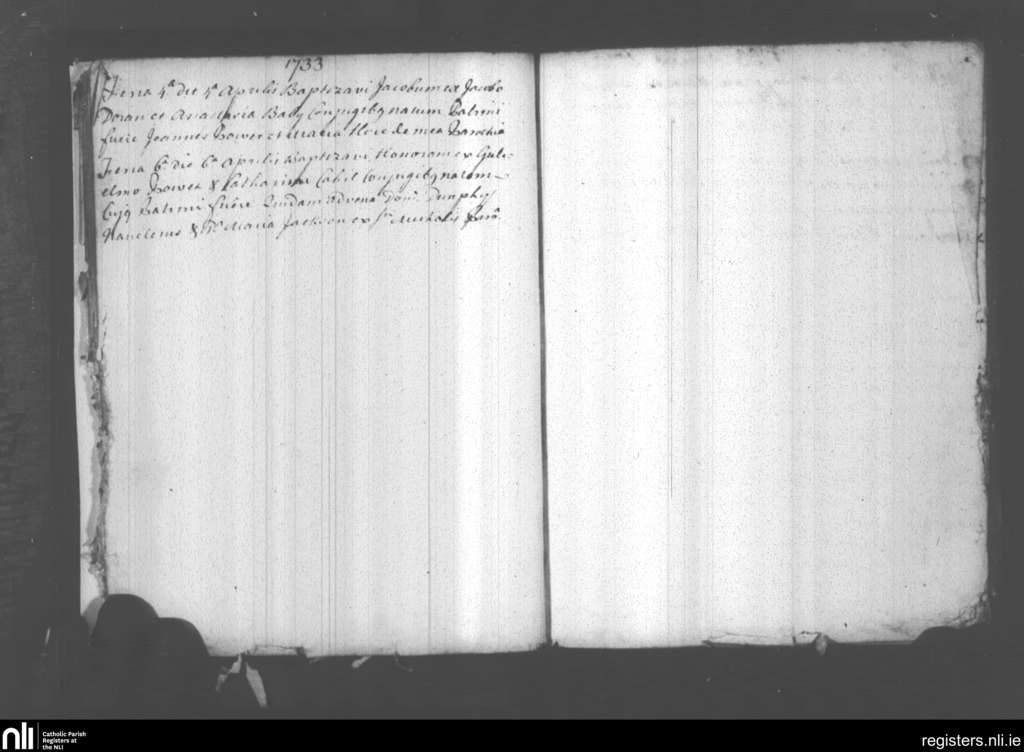 1733
Feria 4ª die 4ª Aprilis Baptizavi Jacobum ex Jacobo
Doran et Anastasia Baly Conjugibq natum Patrini
fuere Joannes Power et Maria de mea Parochia
Feria 6ª die 6ª Aprilis Baptizavi Honoram ex Guli-
elmo Power & Catharina Cabil Conjugibq natam
Cujq Patrini fuere Quidam Advena Domˢ Dunphy
& Maria Jackson ex Michalis Paroᵃ
nli
Catholic Parish
Registers at
the NLI
registers.nli.ie